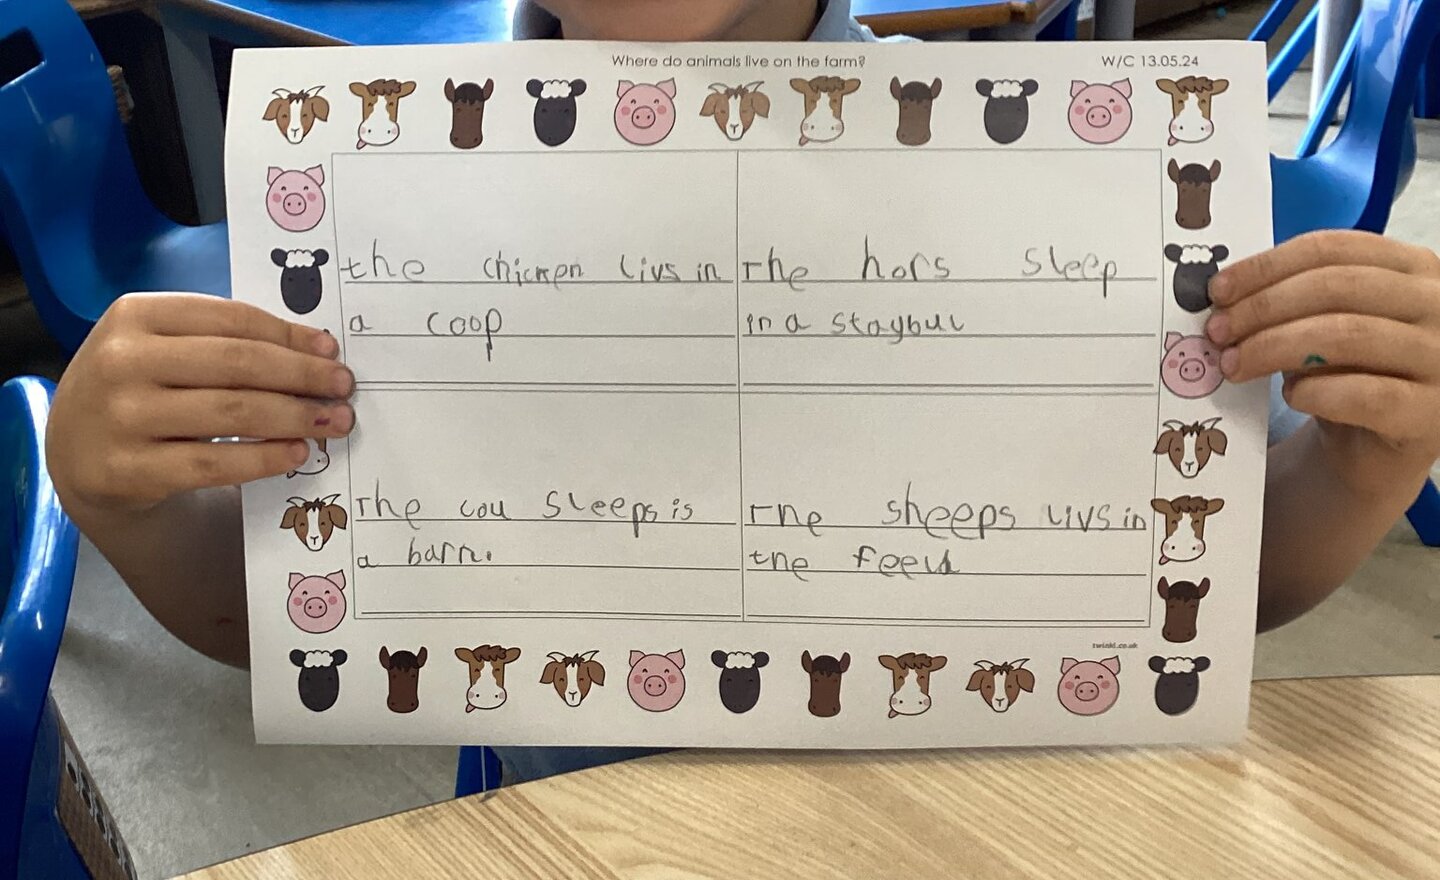 Where do animals live on the farm?
W/C 13.05.24
the chicken livs in
a coop
The hors sleep
in a staybul
The cou sleeps is
a barn.
The sheeps livs in
the feeld
twinkl.co.uk